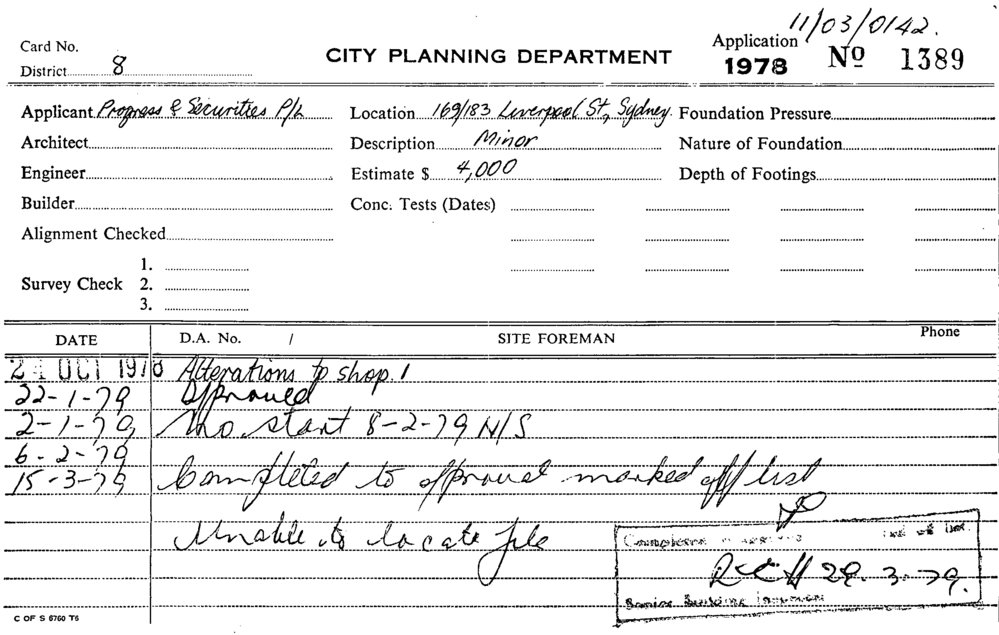 11/03/0142.
Card No.
District 8
CITY PLANNING DEPARTMENT
Application
1978 No 1389
Applicant Progress & Securities P/L
Location 169/183 Liverpool St, Sydney.
Foundation Pressure
Architect
Description Minor
Nature of Foundation
Engineer
Estimate $ 4,000
Depth of Footings
Builder
Conc. Tests (Dates)
Alignment Checked
Survey Check
1.
2.
3.
DATE D.A. No. / SITE FOREMAN Phone
24 OCT 1978 Alterations to shop 1
22-1-79 Approved
2-1-79 No start 8-2-79 N/S
6-2-79
15-3-79 Completed to approval marked off list
Unable to locate file
29.3.79.
Senior Building
C OF S 6760 T6